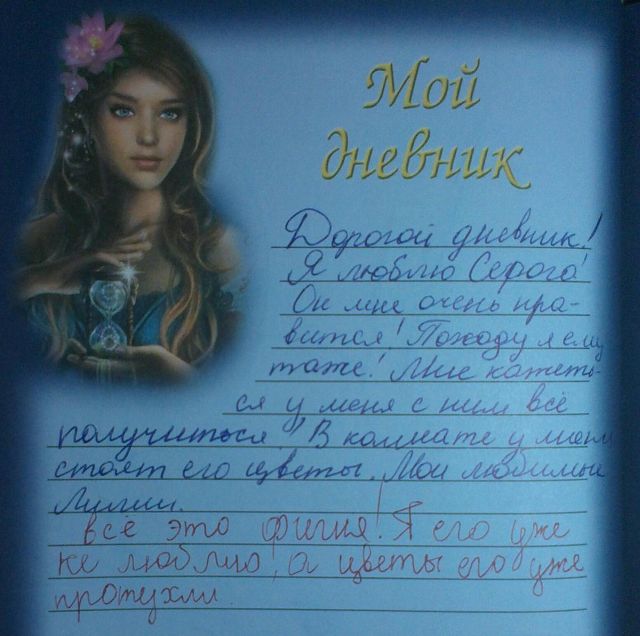 Мой
дневник
Дорогой дневник!
Я люблю Серого!
Он мне очень нра-
вится! Походу я ему
тоже! Мне кажеть-
ся у меня с ним всё
получиться! В комнате у меня
стоят его цветы. Мои любимые
Лилии.
Всё это фигня! Я его уже
не люблю, а цветы его уже
протухли.